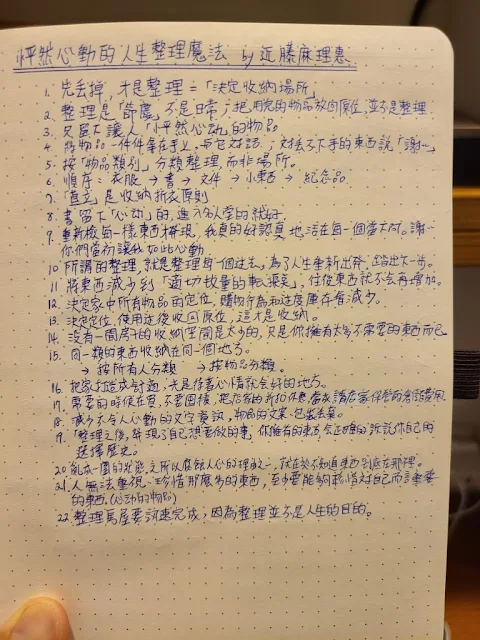 怦然心動的人生整理魔法 by 近藤麻理惠
1. 先丟掉，才是整理=「決定收納場所」
2. 整理是「節慶」不是日常；把用完的物品放回原位，並不是整理
3. 只留下讓人「怦然心動」的物品
4. 將物品一件件拿在手上，與它對話；丟不下手的東西說「謝謝」
5. 按「物品類別」分類整理，而非場所。
6. 順序：衣服→書→文件→小東西→紀念品
7. 「直立」是收納折衣原則
8. 書留下「心動」的，進入名人堂的就好
9. 重新檢每一樣東西，我真的好認真地活在每一個當下。謝
你們當初讓我如此心動
10. 所謂的整理，就是整理每一個過去，為了人生重新出發，踏出大一步。
11. 將東西減少到「適切數量的轉換點」，往後東西就不會再增加。
12. 決定家中所有物品的定位，購物行為和過度庫存會減少。
13. 決定定位，使用過後收回原位，這才是收納。
14. 沒有一間房子的收納空間是太少的，只是你擁有太多不需要的東西而已
15. 同一類的東西收納在同一個地方。
→按所有人分類→按物品分類。
16. 把家打造成舒適，光是待著心情就會好的地方。
17. 需要的時候在買，不要囤積，把店家的折扣優惠，當成請店家保管的倉儲費用
18. 減少不令人心動的文字資訊，物品的文案、包裝丟棄。
19. 「整理之後，發現了自己想要做的事」你擁有的東西會正確的訴說你自己的
選擇歷史。
20. 亂成一團的狀態，之所以腐蝕人心的理由之一，就在於不知道東西到底在那裡。
21. 人無法重視、珍惜那麼多的東西，至少要能夠珍惜對自己而言重要
的東西。(心動的物品)
22. 整理房屋要迅速完成；因為整理並不是人生的目的。